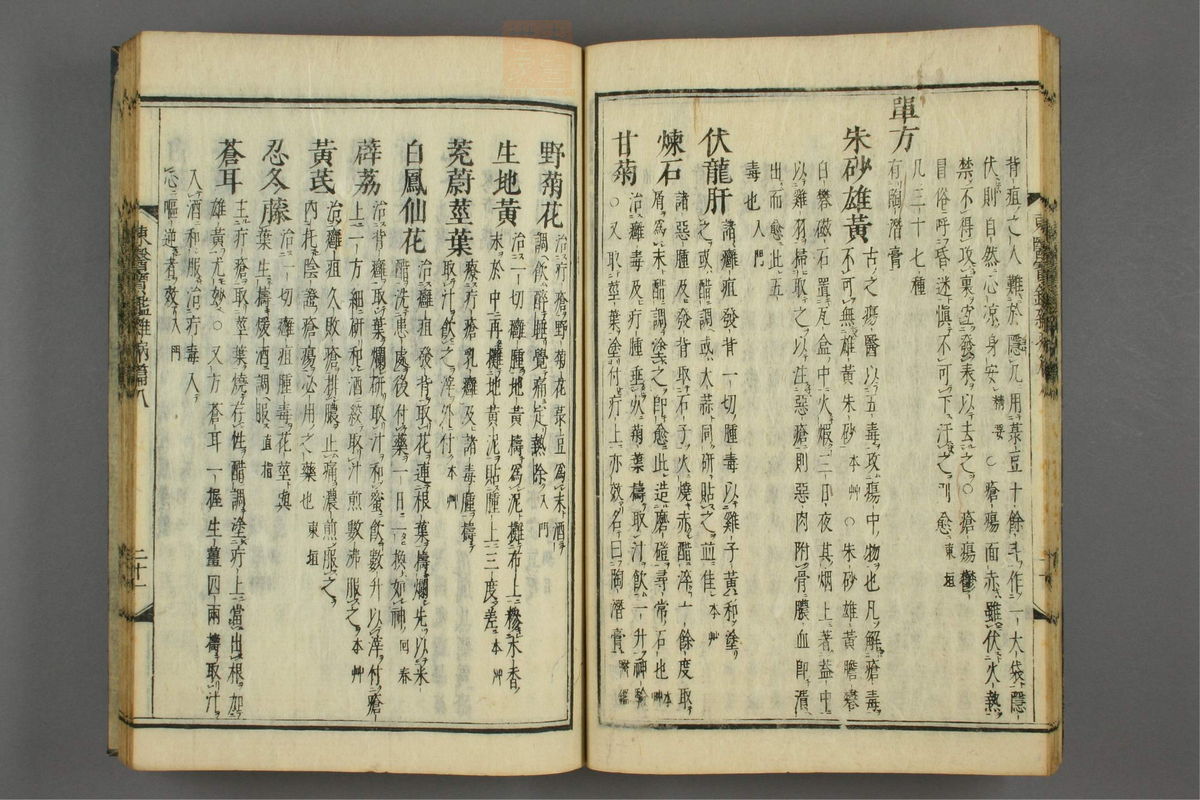 背疽之人難於隱几用菉豆十餘斗作一大袋隱
伏則自然心凉身安 精要 ○瘡瘍面赤雖伏火熱
禁不得攻裏宜發表以去之○瘡瘍鬱
冒俗呼昏迷愼不可下汗之則愈 東垣
單方 凡三十七種
有陶潛膏
朱砂雄黃 古之瘍醫以五毒攻瘍中物也凡解瘡毒
不可無雄黃朱砂 本艸 ○朱砂雄黃膽礬
白礬磁石置瓦盒中火煆三日夜其烟上著盖中
以雞羽掃取之以注惡瘡則惡肉附骨膿血卽潰
出而愈此五
毒也 入門
伏龍肝 諸癰疽發背一切腫毒以雞子黃和塗
之或醋調或大蒜同研貼之並佳 本艸
煉石 諸惡腫及發背取石子火燒赤醋淬十餘度取
屑爲末醋調塗之卽愈此造磨磑尋常石也 本艸
甘菊 治癰毒及疔腫垂死菊葉擣取汁飮一升神驗
○又取莖葉塗付疔上亦效名曰陶潛膏 醫鑑
野菊花 治疔瘡野菊花菉豆爲末酒
調飮醉睡覺痛定熱除 入門
生地黃 治一切癰腫地黃擣爲泥攤布上糝木香
末於中再攤地黃泥貼腫上三度差 本艸
茺蔚莖葉 療疔瘡乳癰及諸毒腫擣
取汁飮之滓外付 本艸
白鳳仙花 治癰疽發背取花連根葉擣爛先以米
醋洗患處後付藥一日一換如神 回春
薜荔 治背癰取葉爛硏取汁和蜜飮數升以滓付瘡
上一方細硏和酒絞取汁煎數沸服之 本艸
黃芪 治癰疽久敗瘡排膿止痛濃煎服之○
內托陰證瘡瘍必用之藥也 東垣
忍冬藤 治一切癰疽腫毒花莖與
葉生擣煖酒調服 直指
蒼耳 主疔瘡取莖葉燒存性醋調塗疔上當出根加
雄黃尤妙○又方蒼耳一握生薑四兩擣取汁
入酒和服治疔毒入
心嘔逆者效 入門
東醫寶鑑雜病篇八
二十一